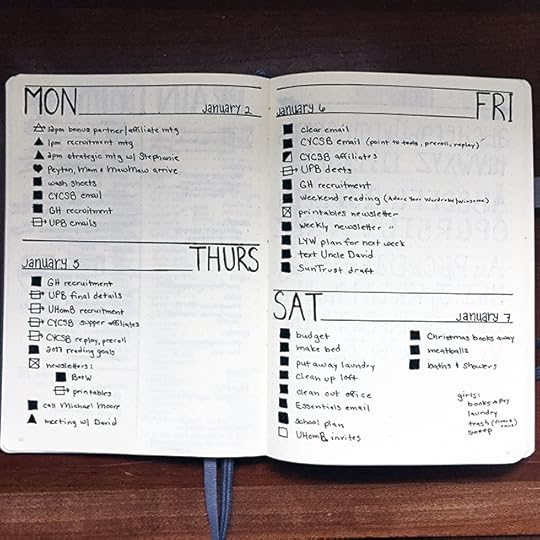 MON
January 2
12pm bonus partner/affiliate mtg
1pm recruitment mtg
2pm strategic mtg w/ Stephanie
Peyton, Mom & MawMaw arrive
wash sheets
CYCSB email
GH recruitment
UPB emails
January 5
THURS
GH recruitment
UPB final details
UHomB recruitment
CYCSB supper affiliates
CYCSB replay, precall
2017 reading goals
newsletters:
B+W
printables
call Michael Moore
meeting w/ David
January 6
FRI
clear email
CYCSB email (point to tools, precall, replay)
CYCSB affiliates
UPB deets
GH recruitment
weekend reading (Adore Your Wardrobe/winsome)
printables newsletter
weekly newsletter "
LYW plan for next week
text Uncle David
SunTrust draft
SAT
January 7
budget
make bed
put away laundry
clean up loft
clean out office
Essentials email
school plan
UHomB invites
Christmas books away
meatballs
baths & showers
girls:
books away
laundry
trash
sweep